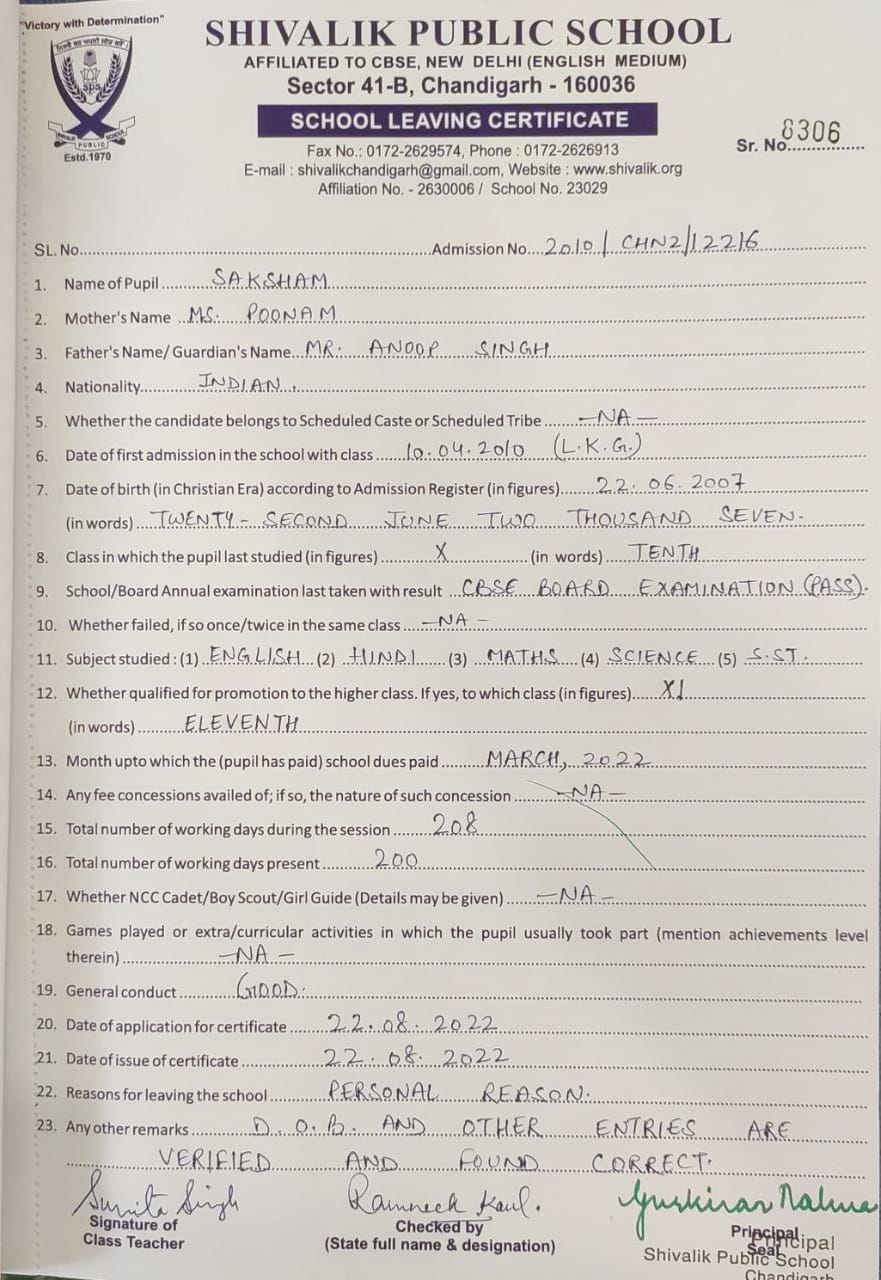 "Victory with Determination"
SHIVALIK PUBLIC SCHOOL
AFFILIATED TO CBSE, NEW DELHI (ENGLISH MEDIUM)
Sector 41-B, Chandigarh - 160036
SCHOOL LEAVING CERTIFICATE
SPS
SHIVALIK PUBLIC SCHOOL
Estd.1970
Fax No.: 0172-2629574, Phone : 0172-2626913
E-mail : shivalikchandigarh@gmail.com, Website : www.shivalik.org
Affiliation No. - 2630006 / School No. 23029
Sr. No. 8306
SL. No. Admission No. 2010 / CHN2/12216
1. Name of Pupil SAKSHAM
2. Mother's Name MS. POONAM
3. Father's Name/ Guardian's Name MR. ANOOP SINGH
4. Nationality INDIAN.
5. Whether the candidate belongs to Scheduled Caste or Scheduled Tribe -NA-
6. Date of first admission in the school with class 10.04.2010 (L.K.G.)
7. Date of birth (in Christian Era) according to Admission Register (in figures) 22.06.2007
(in words) TWENTY-SECOND JUNE TWO THOUSAND SEVEN.
8. Class in which the pupil last studied (in figures) X (in words) TENTH
9. School/Board Annual examination last taken with result CBSE BOARD EXAMINATION (PASS).
10. Whether failed, if so once/twice in the same class -NA-
11. Subject studied : (1) ENGLISH (2) HINDI (3) MATHS (4) SCIENCE (5) S.ST.
12. Whether qualified for promotion to the higher class. If yes, to which class (in figures) XI
(in words) ELEVENTH
13. Month upto which the (pupil has paid) school dues paid MARCH, 2022
14. Any fee concessions availed of; if so, the nature of such concession -NA-
15. Total number of working days during the session 208
16. Total number of working days present 200
17. Whether NCC Cadet/Boy Scout/Girl Guide (Details may be given) -NA-
18. Games played or extra/curricular activities in which the pupil usually took part (mention achievements level
therein) -NA-
19. General conduct GOOD.
20. Date of application for certificate 22.08.2022
21. Date of issue of certificate 22.08.2022
22. Reasons for leaving the school PERSONAL REASON.
23. Any other remarks D.O.B. AND OTHER ENTRIES ARE
VERIFIED AND FOUND CORRECT.
Sunita Singh Ramneek Kaul.
Signature of Class Teacher
Checked by
(State full name & designation)
Principal
Seal
Principal
Shivalik Public School
Chandigarh